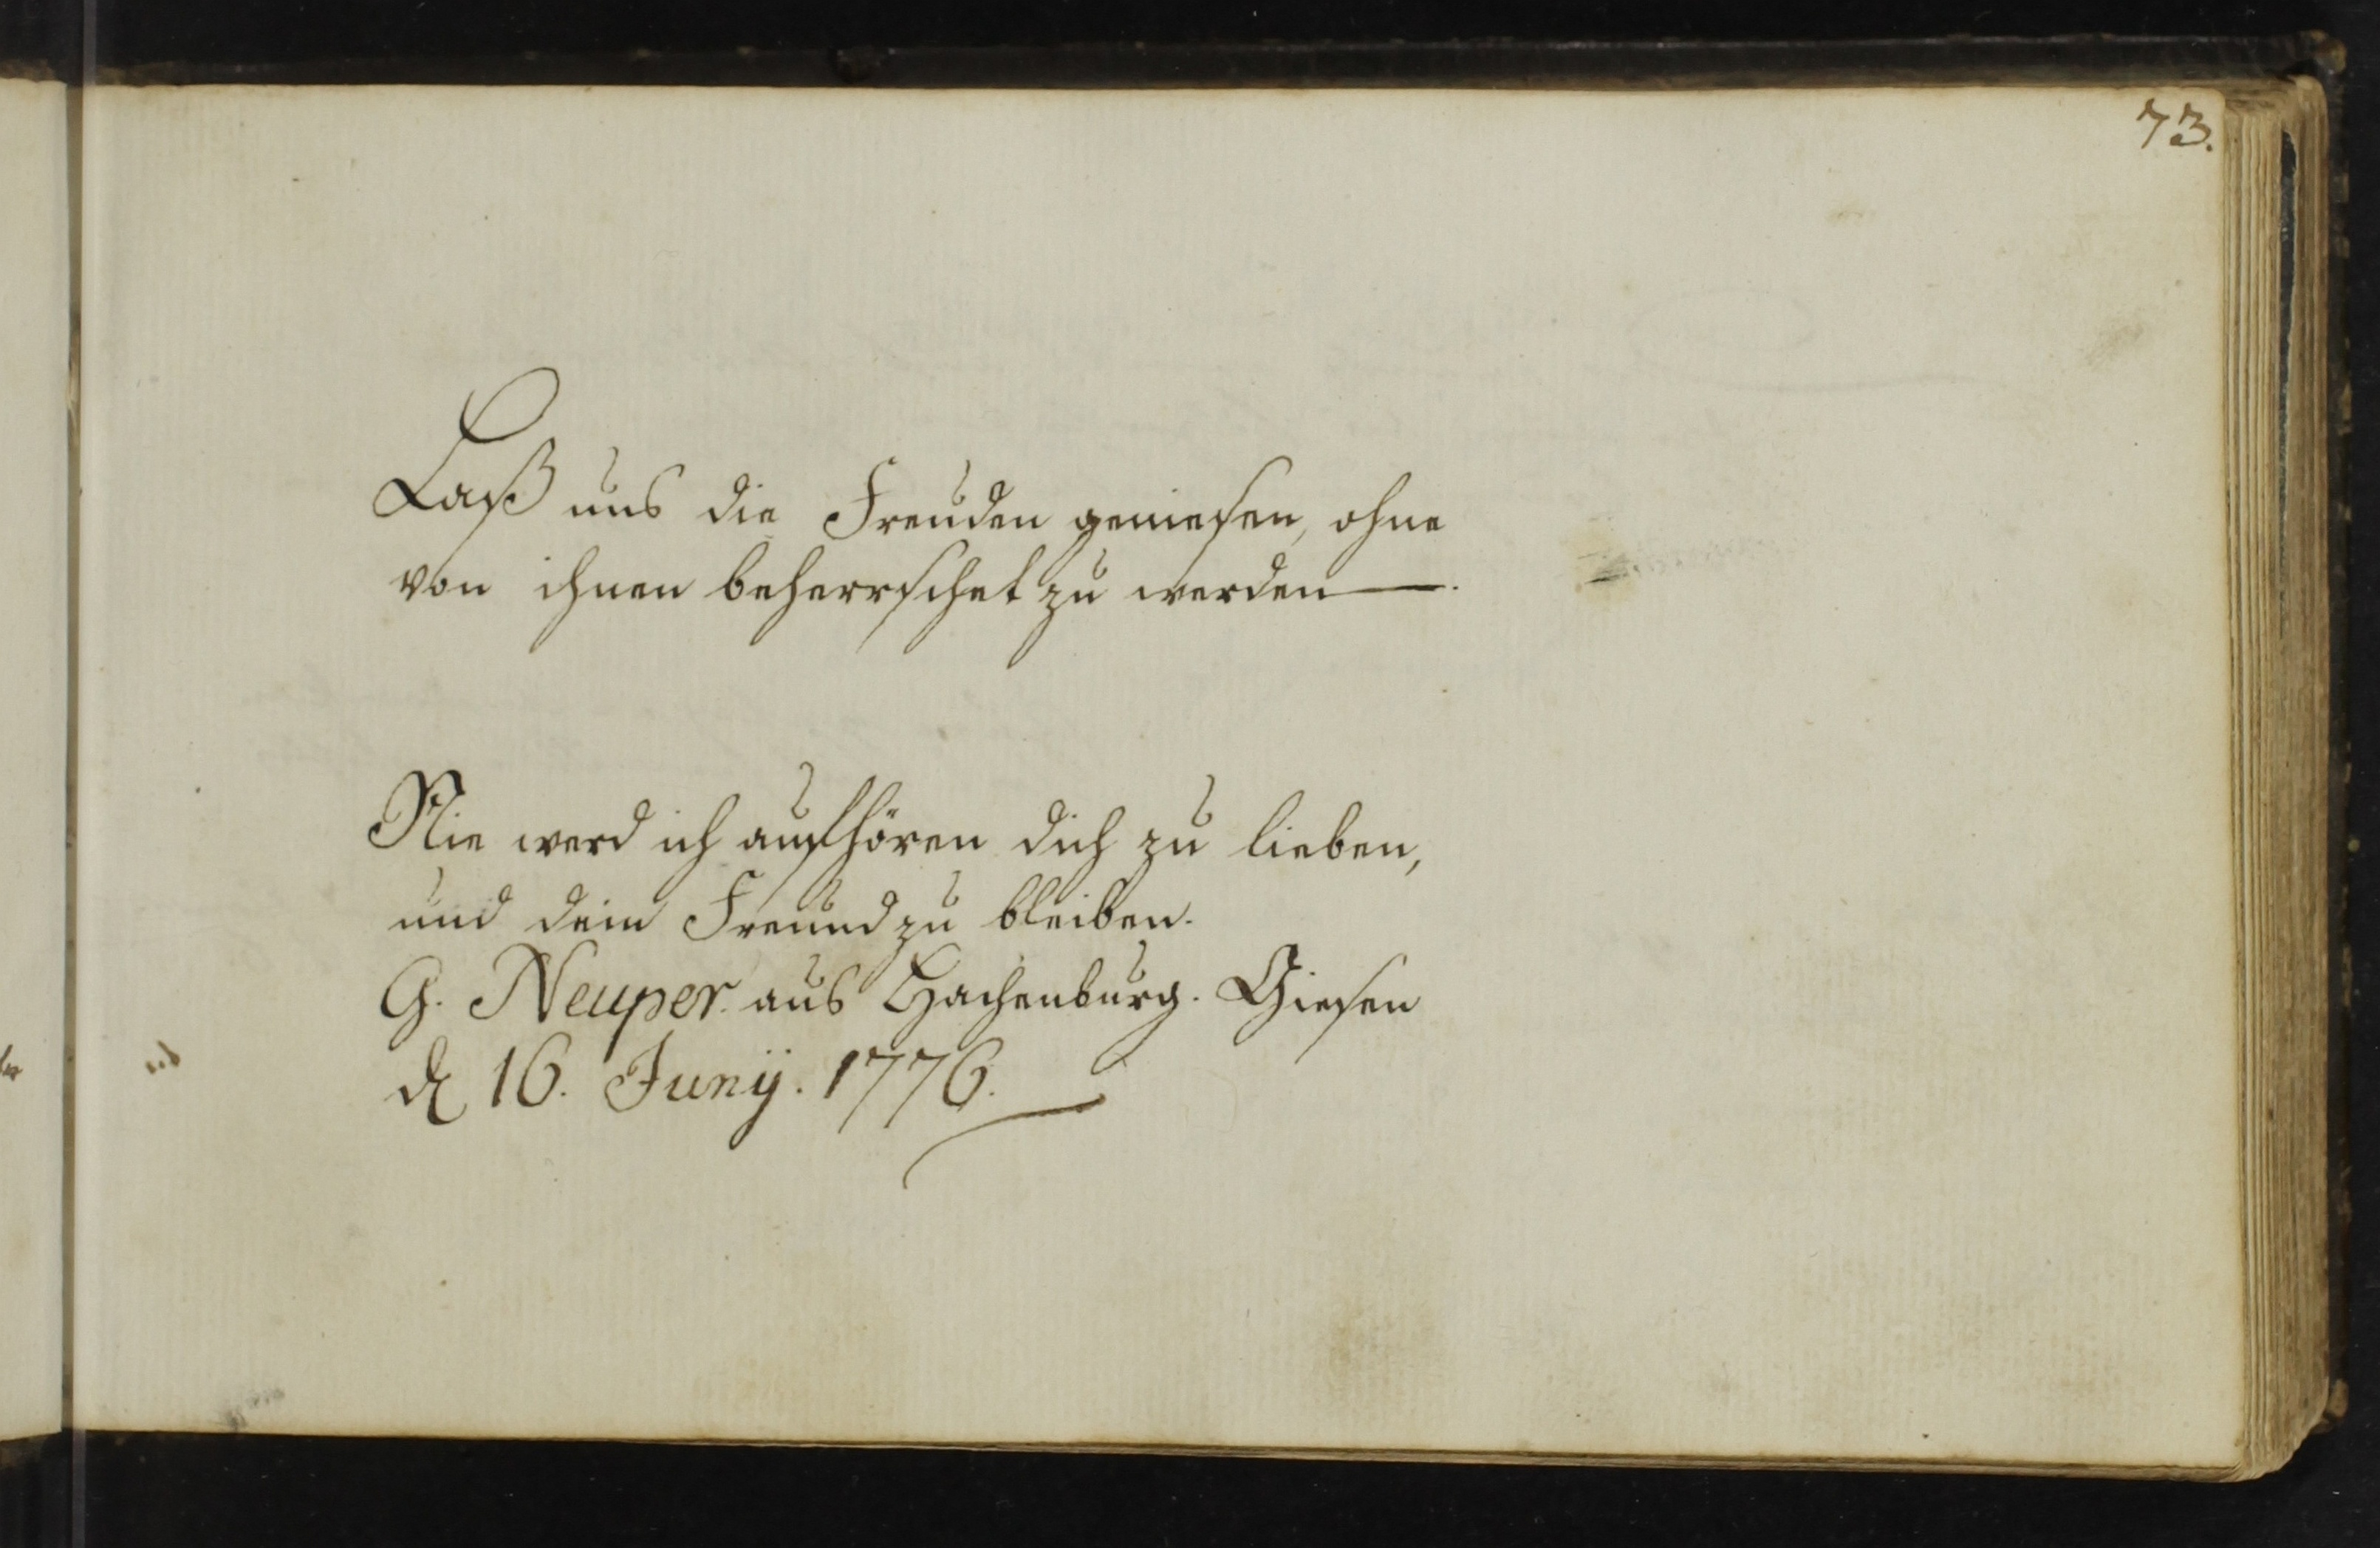 73.
Laß uns die Freuden geniesen, ohne
von ihnen beherrschet zu werden—.
Nie werd ich aufhören dich zu lieben,
und dein Freund zu bleiben.
G. Neuper. aus Hachenburg. Giesen
d 16. Junij. 1776.